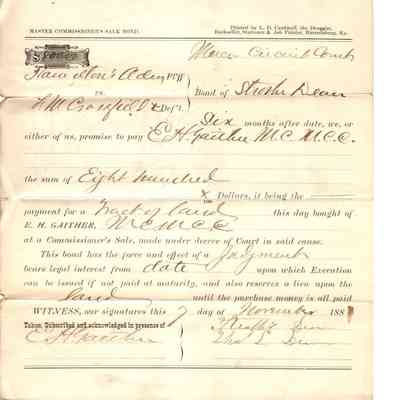 MASTER COMMISSIONER'S SALE BOND.
Printed by L. D. Cardwell, the Druggist,
Bookseller, Stationer & Job Printer, Harrodsburg, Ky.
Mercer Circuit Court
Adm Pl'ff
vs.
Bond of Strother Dean
H M Def't.
Six months after date, we, or
either of us, promise to pay E H Gaither M.C. M.C.C.
the sum of Eight hundred
Dollars, it being the
payment for a Tract of land this day bought of
E. H. GAITHER, M.C.M.C.C.
at a Commissioner's Sale, made under decree of Court in said cause.
This bond has the force and effect of a Judgment
bears legal interest from date upon which Execution
can be issued if not paid at maturity, and also reserves a lien upon the
land until the purchase money is all paid
WITNESS, our signatures this 7 day of November 188
Taken, Subscribed and acknowledged in presence of
E H Gaither
Strother Dean